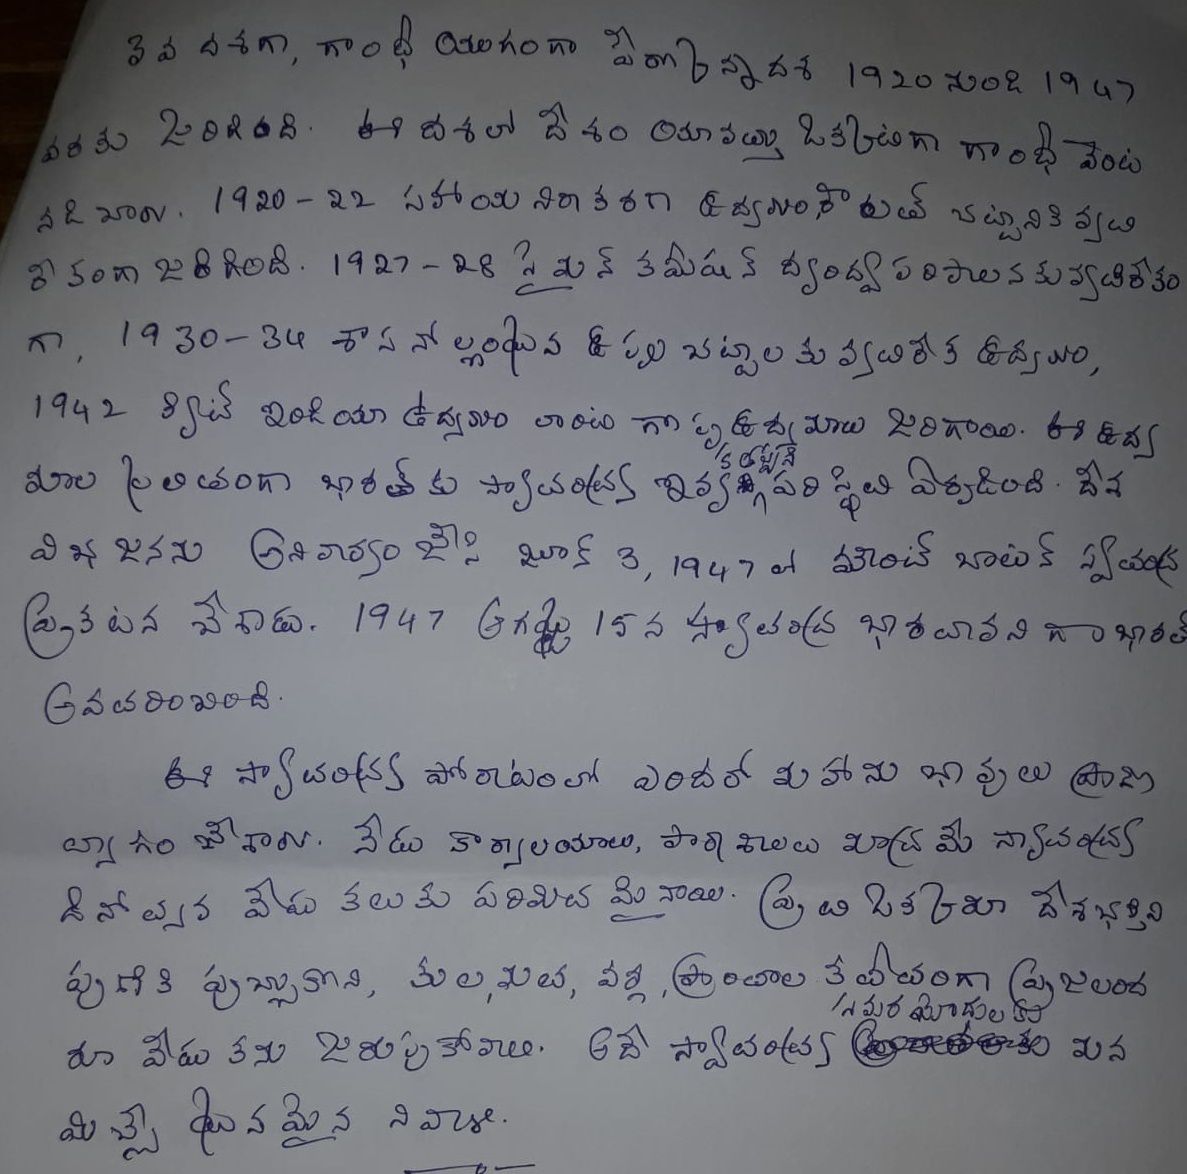 3వ దశగా, గాంధీ యుగంగా పేర్కొన్నాదశ 1920 నుండి 1947
వరకు జరిగింది. ఈ దశలో దేశం యావత్తు ఒకత్రాటిగా గాంధీ వెంట
నడిచారు. 1920-22 సహాయ నిరాకరణ ఉద్యమం, రౌలత్ చట్టానికి వ్యతి
రేకంగా జరిగింది. 1927-28 సైమన్ కమీషన్ ద్వంద్వ పరిపాలనకు వ్యతిరేకం
గా, 1930-34 శాసనోల్లంఘన ఉప్పు చట్టాలకు వ్యతిరేక ఉద్యమం,
1942 క్విట్ ఇండియా ఉద్యమం లాంటి గొప్ప ఉద్యమాలు జరిగాయి. ఈ ఉద్య
మాల ఫలితంగా భారత్ కు స్వాతంత్ర్య ఇవ్వకతప్పని పరిస్థితి ఏర్పడింది. దేశ
విభజనను అనివార్యం చేసి జూన్ 3, 1947 లో మౌంట్ బాటన్ స్వతంత్ర
ప్రకటన చేశాడు. 1947 ఆగష్టు 15న స్వాతంత్ర భారతావనిగా భారత్
అవతరించింది.
ఈ స్వాతంత్ర్య పోరాటంలో ఎందరో మహానుభావులు ప్రాణ
త్యాగం చేశారు. నేడు కార్యాలయాలు, పాఠశాలలు మాత్రమే స్వాతంత్ర్య
దినోత్సవ వేడుకలకు పరిమితమైనాయి. ప్రతి ఒక్కరూ దేశభక్తిని
పుణికి పుచ్చుకొని, కుల, మత, వర్గ, ప్రాంతాల కతీతంగా ప్రజలంద
రూ వేడుకను జరుపుకోవాలి. అదే స్వాతంత్ర్య సమరయోధులకు మన
మిచ్చే ఘనమైన నివాళి.